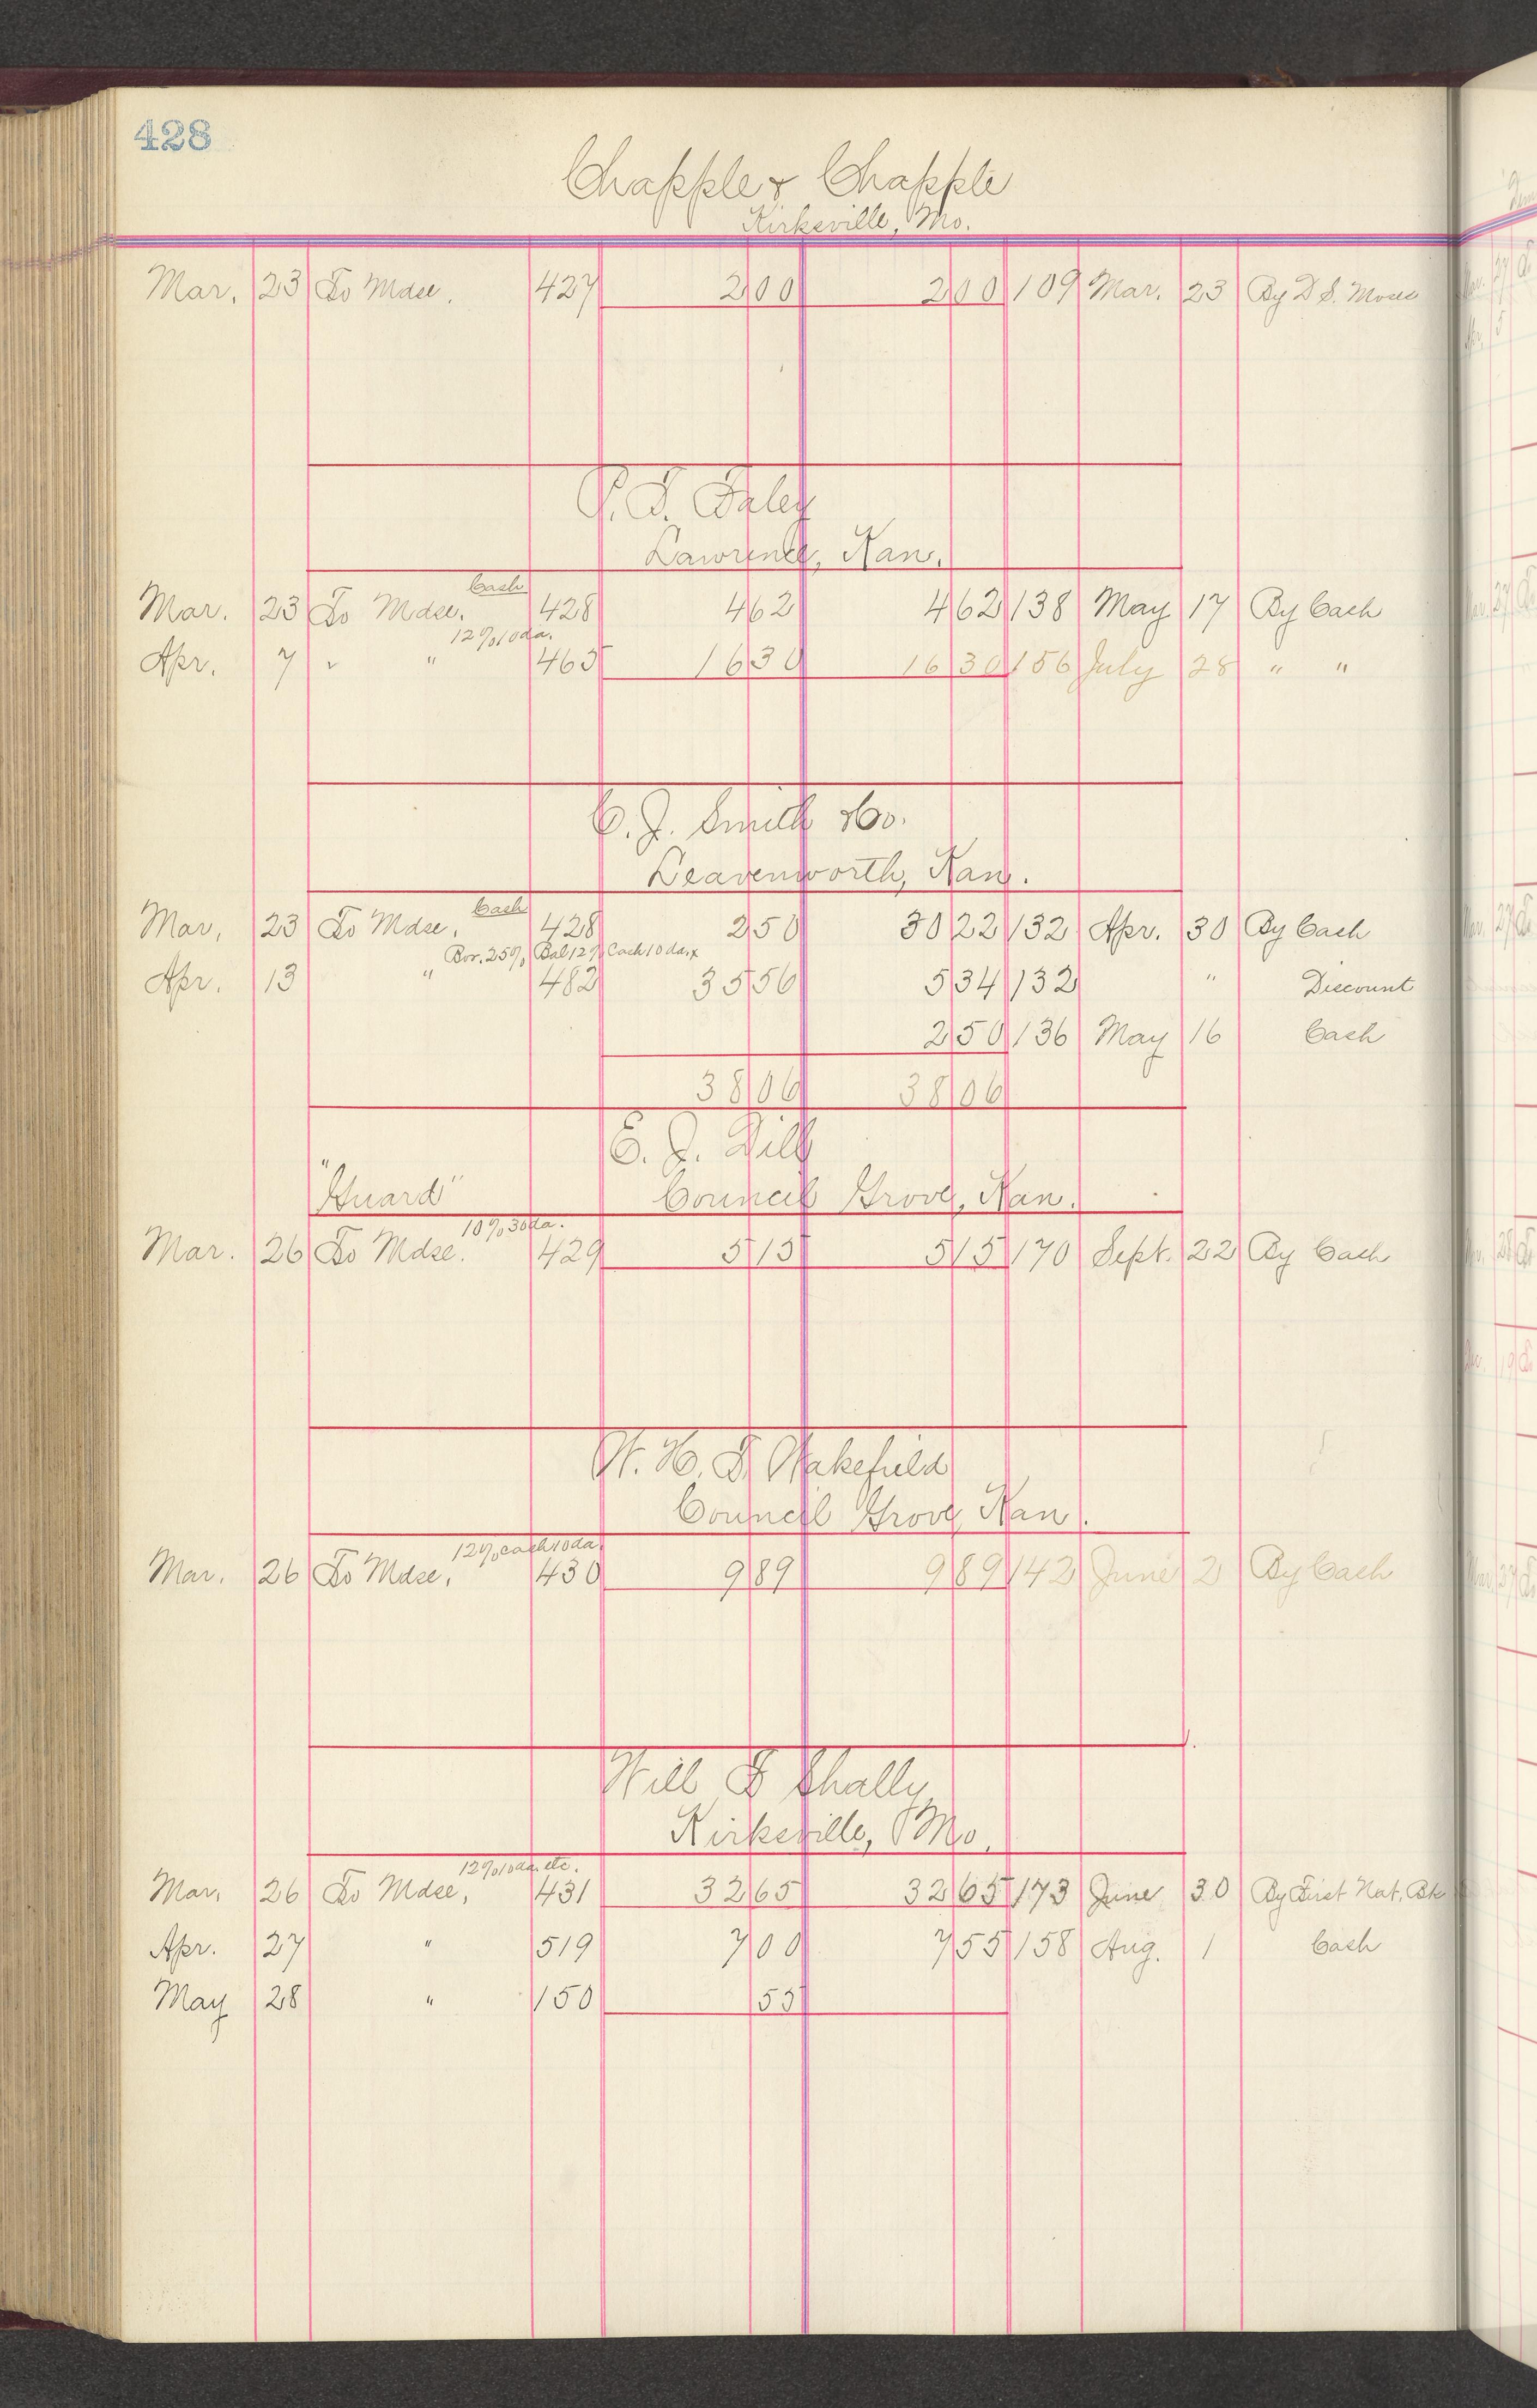 428
Chapple & Chapple
Kirksville, Mo.
Mar. 23 To Mdse. 427 2 00 2 00 109 Mar. 23 By D. S. Moses
Lawrence, Kan.
Cash
Mar. 23 To Mdse. 428 4 62 4 62 138 May 17 By Cash
12% 10 da.
Apr. 7 " " 465 16 30 16 30 156 July 28 " "
C. J. Smith & Co.
Leavenworth, Kan.
Cash
Mar. 23 To Mdse. 428 2 50 30 22 132 Apr. 30 By Cash
Bor. 25% Bal 12% Cash 10 da. x
Apr. 13 " 482 35 56 5 34 132 " Discount
2 50 136 May 16 Cash
38 06 38 06
E. J. Dill
"Guard" Council Grove, Kan.
10% 30 da.
Mar. 26 To Mdse. 429 5 15 5 15 170 Sept. 22 By Cash
W. H. F. Wakefield
Council Grove, Kan.
12% cash 10 da.
Mar. 26 To Mdse. 430 9 89 9 89 142 June 2 By Cash
Will Shally
Kirksville, Mo.
12% 10 da. etc.
Mar. 26 To Mdse. 431 32 65 32 65 173 June 30 By First Nat. Bk
Apr. 27 " 519 7 00 7 55 158 Aug. 1 Cash
May 28 " 150 55